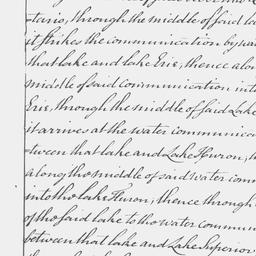 -tario, through the middle of said La
it strikes the communication by wa
that Lake and Lake Erie, thence alon
middle of said communication into
Erie, through the middle of said Lake
it arrives at the water communica
-tween that lake and Lake Huron, 
along the middle of said water com
into the Lake Huron, thence through
of the said Lake to the water commun
between that lake and Lake Superior